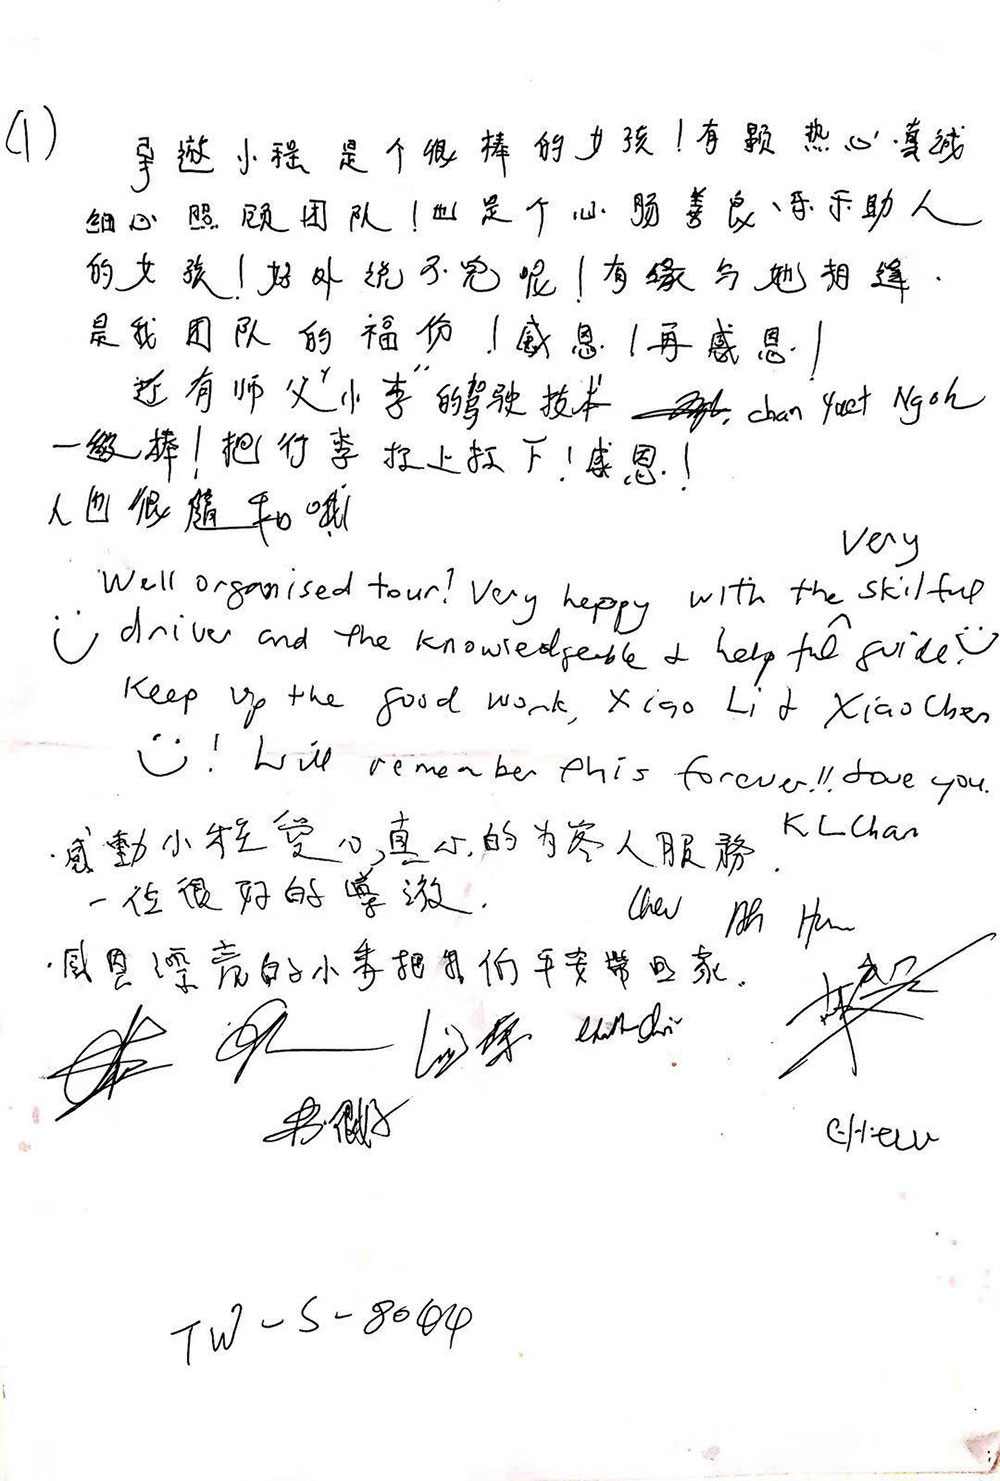 (1)
导遊小程是个很棒的女孩！有颗热心.真诚
细心照顾团队！也是个心肠善良、乐乐助人
的女孩！好处说不完呢！有缘与她相逢.
是我团队的福份！感恩！再感恩！
还有师父"小李"的驾驶技术 Chan Yuet Ngoh
一级棒！把行李扛上扛下！感恩！
人也很随和哦!
Very
Well organised tour! Very happy with the skilful
driver and the knowledgeable & helpful guide!
Keep up the good work, Xiao Li & Xiao Chen
! Will remember this forever!! Love you.
K L Chan
·感動小程愛心,真心的为客人服務.
一位很好的導遊.
Chew Ah Hun
·感恩漂亮的小李把我们平安带回家.
CHEW
TW-S-8044